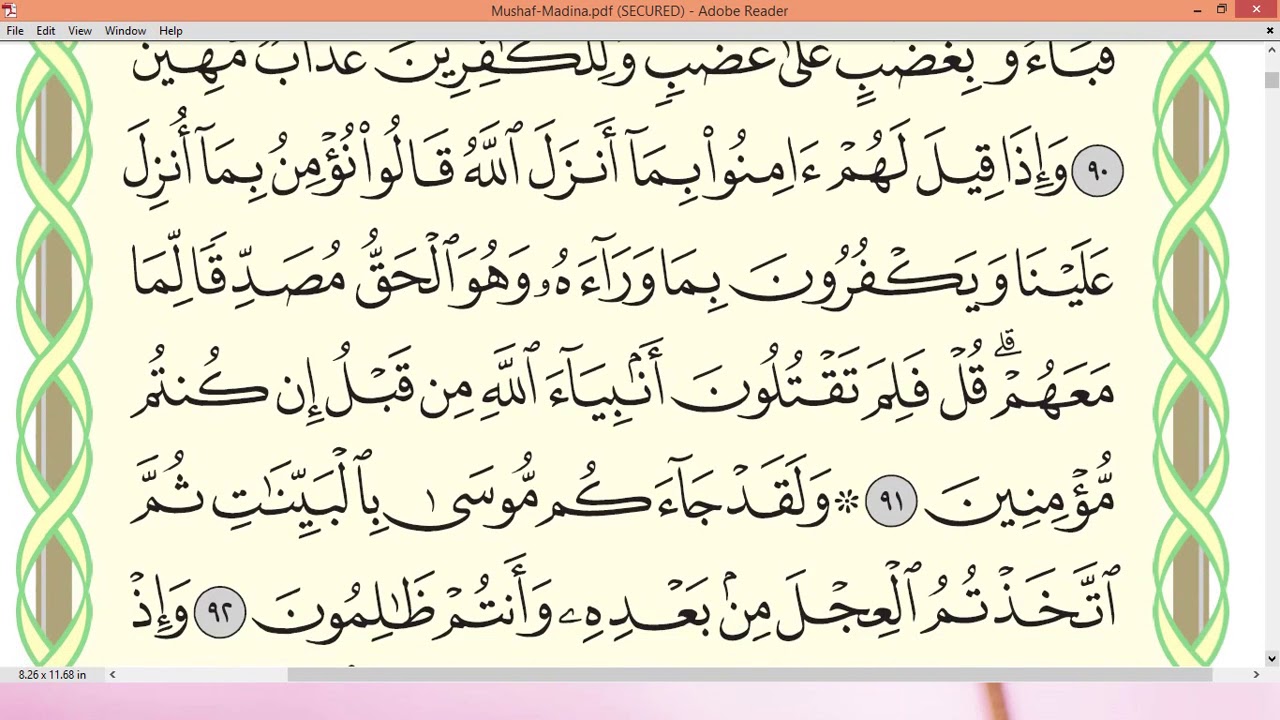 Mushaf-Madina.pdf (SECURED) - Adobe Reader
File Edit View Window Help
فَبَآءُو بِغَضَبٍ عَلَىٰ غَضَبٍ وَلِلْكَـٰفِرِينَ عَذَابٌ مُّهِينٌ
٩٠ وَإِذَا قِيلَ لَهُمْ ءَامِنُوا۟ بِمَآ أَنزَلَ ٱللَّهُ قَالُوا۟ نُؤْمِنُ بِمَآ أُنزِلَ
عَلَيْنَا وَيَكْفُرُونَ بِمَا وَرَآءَهُۥ وَهُوَ ٱلْحَقُّ مُصَدِّقًا لِّمَا
مَعَهُمْ ۗ قُلْ فَلِمَ تَقْتُلُونَ أَنۢبِيَآءَ ٱللَّهِ مِن قَبْلُ إِن كُنتُم
مُّؤْمِنِينَ ٩١ ۞ وَلَقَدْ جَآءَكُم مُّوسَىٰ بِٱلْبَيِّنَـٰتِ ثُمَّ
ٱتَّخَذْتُمُ ٱلْعِجْلَ مِنۢ بَعْدِهِۦ وَأَنتُمْ ظَـٰلِمُونَ ٩٢ وَإِذْ
8.26 x 11.68 in